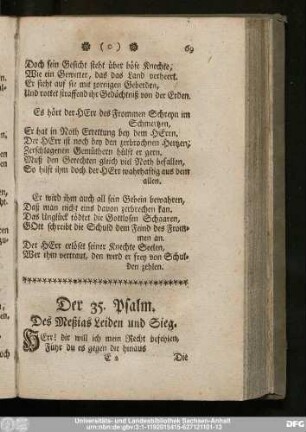 ( o ) 69
Doch sein Gesicht steht über böse Knechte,
Wie ein Gewitter, das das Land verheert.
Er sieht auf sie mit zornigen Geberden,
Und rottet straffend ihr Gedächtniß von der Erden.
Es hört der HErr des Frommen Schreyn im
Schmertzen,
Er hat in Noth Errettung bey dem HErrn,
Der HErr ist noch bey den zerbrochnen Hertzen;
Zerschlagenen Gemüthern hülft er gern.
Muß den Gerechten gleich viel Noth befallen,
So hilft ihm doch der HErr wahrhaftig aus dem
allen.
Er wird ihm auch all sein Gebein bewahren,
Daß man nicht eins davon zerbrechen kan.
Das Unglück tödtet die Gottlosen Schaaren,
GOtt schreibt die Schuld dem Feind des From-
men an.
Der HErr erlöset seiner Knechte Seelen,
Wer ihm vertraut, den wird er frey von Schul-
den zehlen.
Der 35. Psalm.
Des Meßias Leiden und Sieg.
HErr! dir will ich mein Recht befehlen,
Führ du es gegen die hinaus
E 2 Die
Universitäts- und Landesbibliothek Sachsen-Anhalt
urn:nbn:de:gbv:3:1-1192015415-627121101-13
DFG